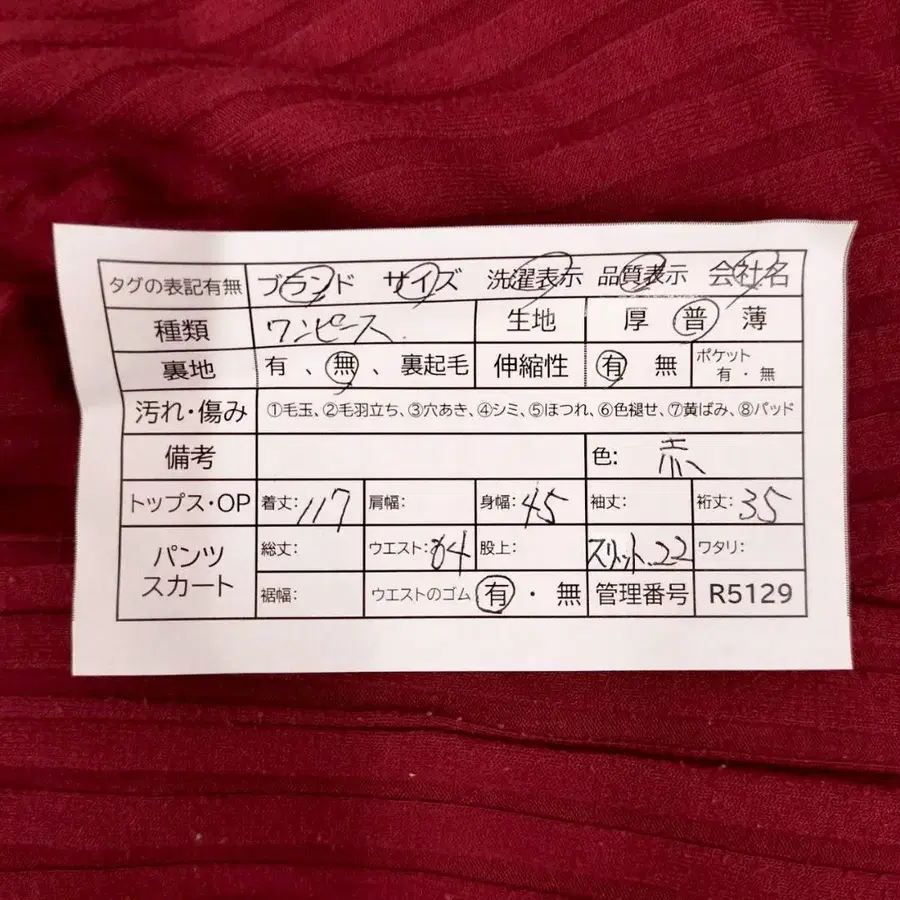 タグの表記有無 ブランド サイズ 洗濯表示 品質表示 会社名
種類 ワンピース 生地 厚 普 薄
裏地 有 、無 、裏起毛 伸縮性 有 無 ポケット 有・無
汚れ・傷み ①毛玉、②毛羽立ち、③穴あき、④シミ、⑤ほつれ、⑥色褪せ、⑦黄ばみ、⑧パッド
備考 色: 赤
トップス・OP 着丈: 117 肩幅: 身幅: 45 袖丈: 裄丈: 35
パンツ スカート 総丈: ウエスト: 64 股上: スリット、22 ワタリ:
裾幅: ウエストのゴム 有・無 管理番号 R5129